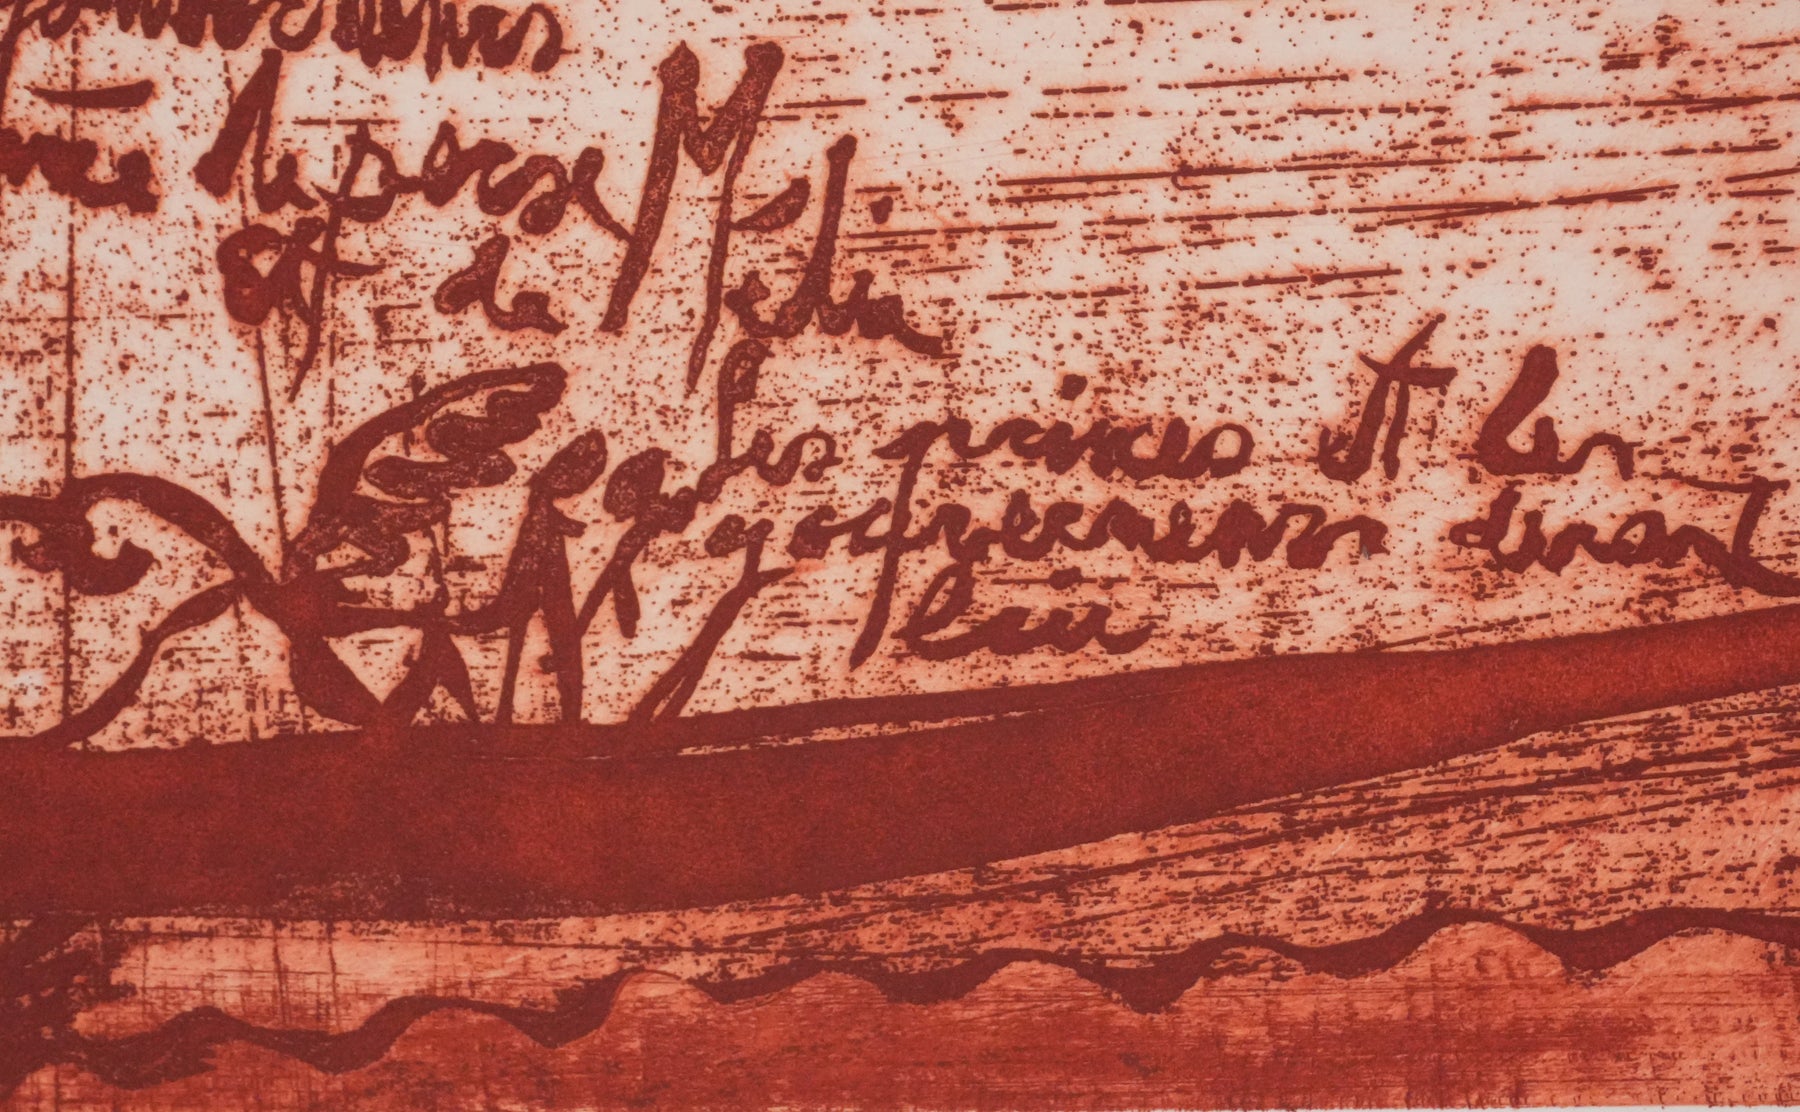 de perse
et de Médie
les princes et les
gouverneurs devant
lui